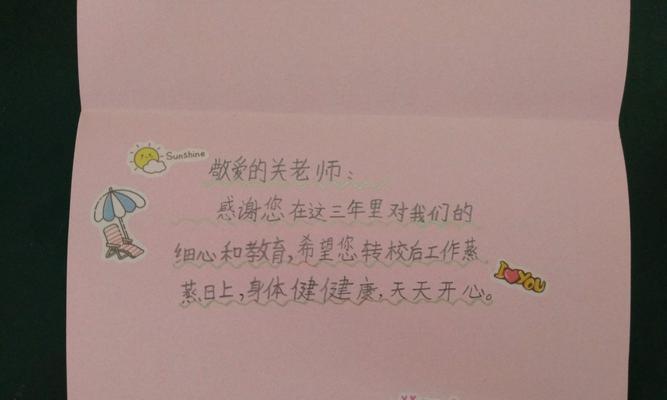 Sunshine
敬爱的关老师:
感谢您在这三年里对我们的
细心和教育,希望您转校后工作蒸
蒸日上,身体健健康,天天开心。
I YOU